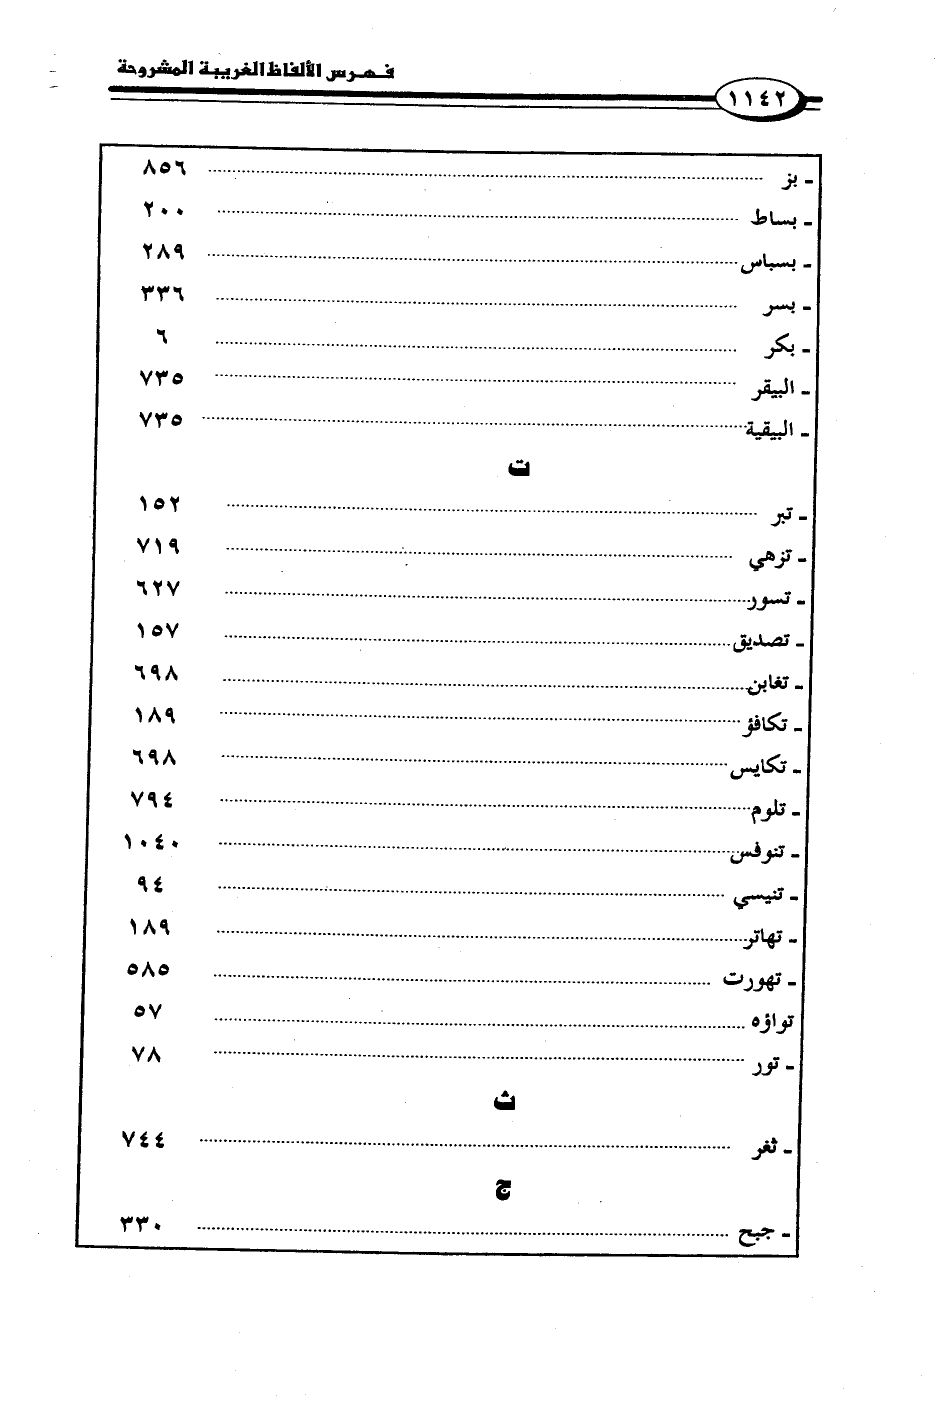 فهرس الألفاظ الغريبة المشروحة
١١٤٢
- بز ٨٥٦
- بساط ٢٠٠
- بسباس ٢٨٩
- بسر ٣٣٦
- بكر ٦
- البيقر ٧٣٥
- البيقية ٧٣٥
ت
- تبر ١٥٢
- تزهي ٧١٩
- تسور ٦٢٧
- تصديق ١٥٧
- تغابن ٦٩٨
- تكافؤ ١٨٩
- تكايس ٦٩٨
- تلوم ٧٩٤
- تنوفس ١٠٤٠
- تنيسي ٩٤
- تهاتر ١٨٩
- تهورت ٥٨٥
تواؤه ٥٧
- تور ٧٨
ث
- ثغر ٧٤٤
ج
- جبح ٣٣٠